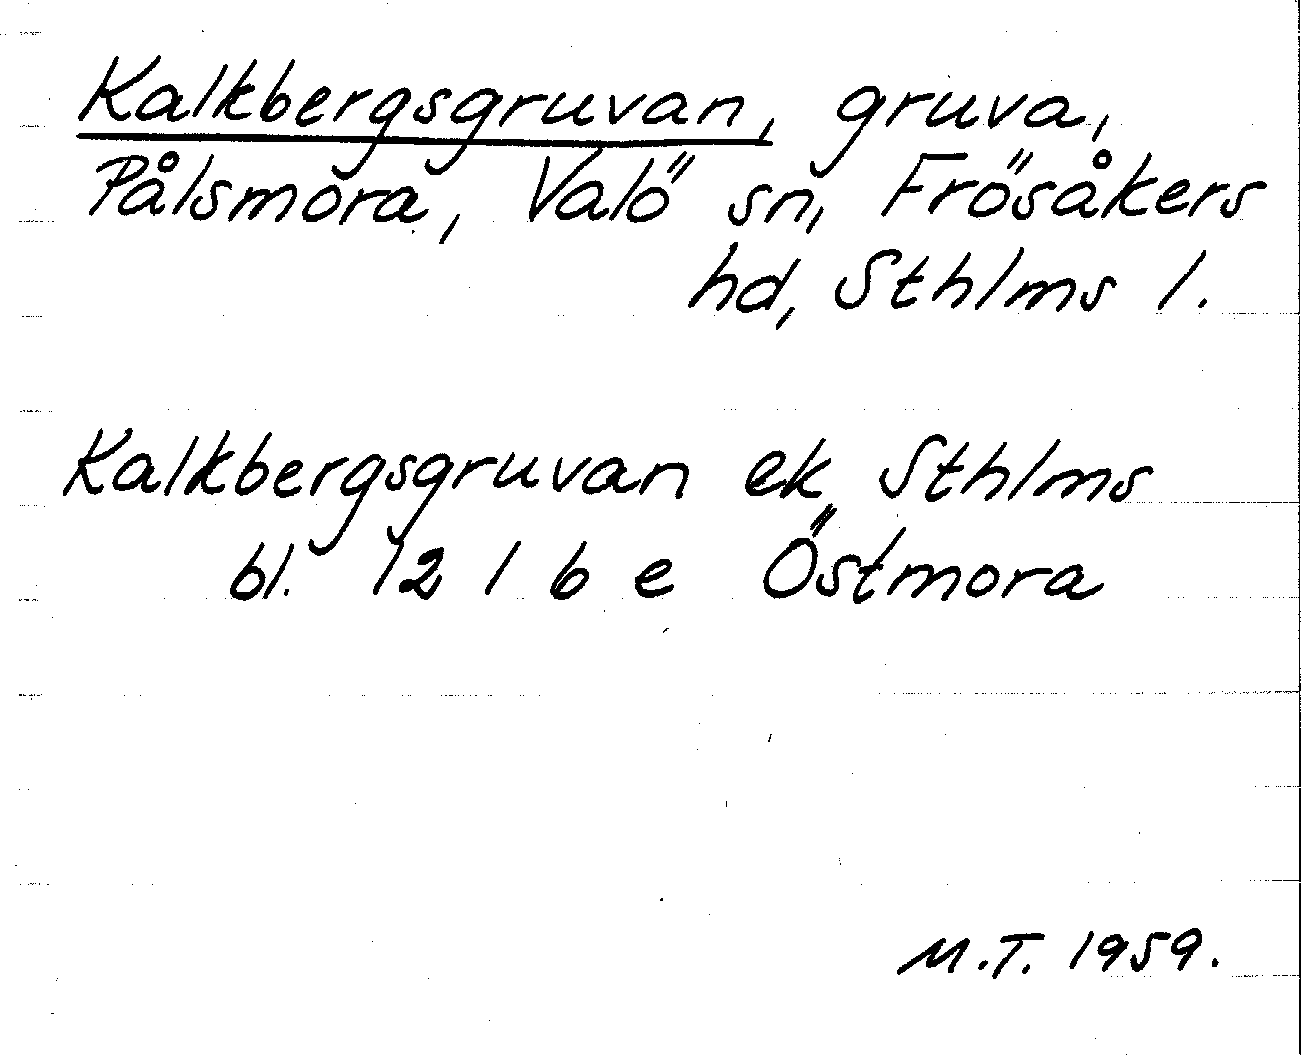 Kalkbergsgruvan, gruva,
Pålsmora, Valö sn, Frösåkers
hd, Sthlms l.
Kalkbergsgruvan ek Sthlms
bl. 12 1 b e Östmora
M.T. 1959.